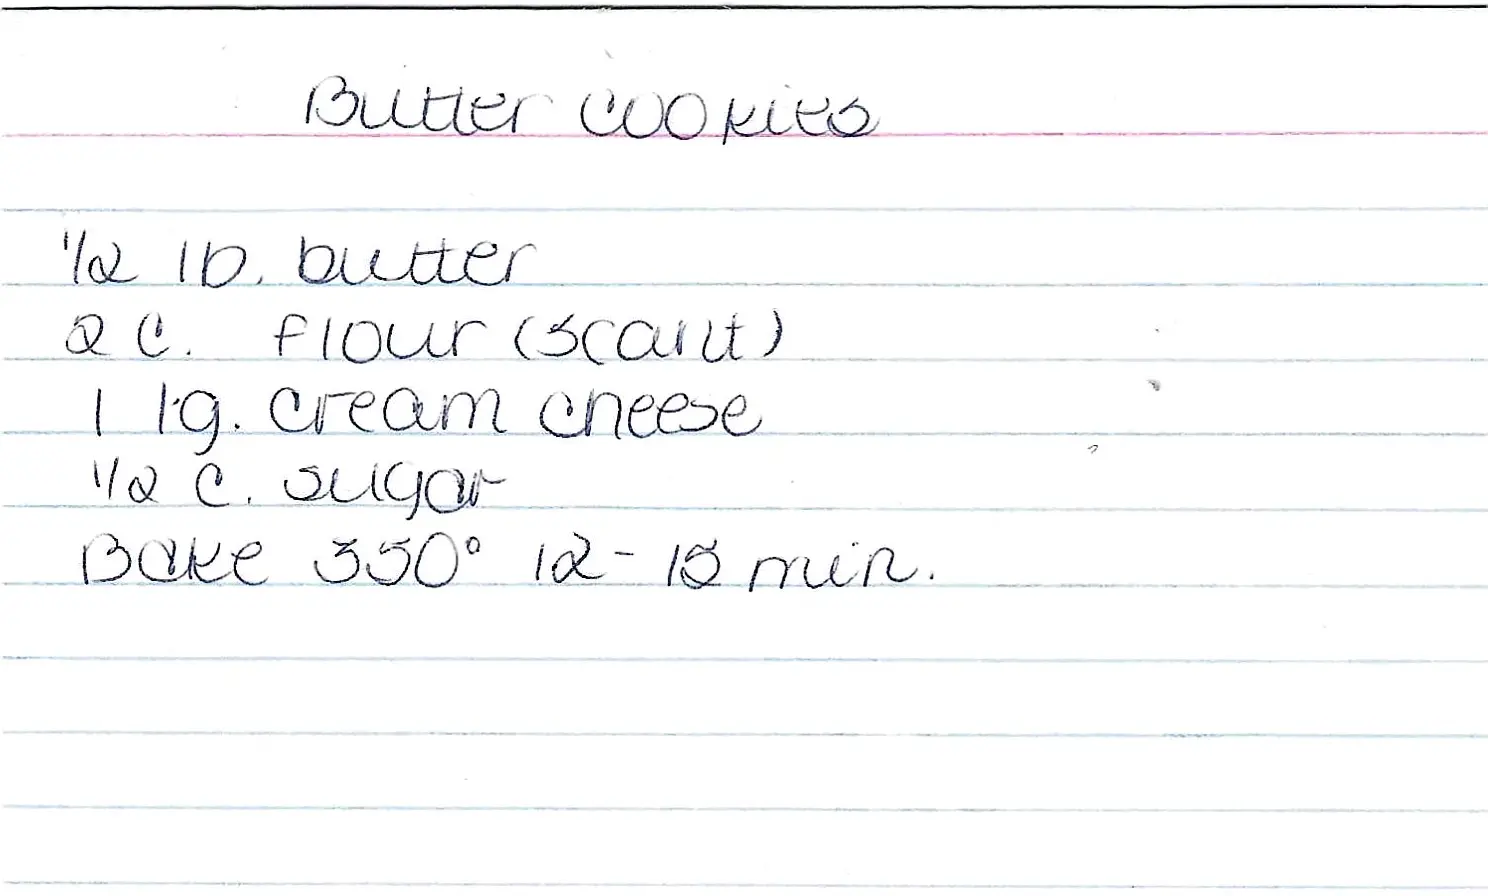 Butter Cookies
1/2 lb. butter
2 c. flour (scant)
1 lg. cream cheese
1/2 c. sugar
Bake 350° 12-15 min.